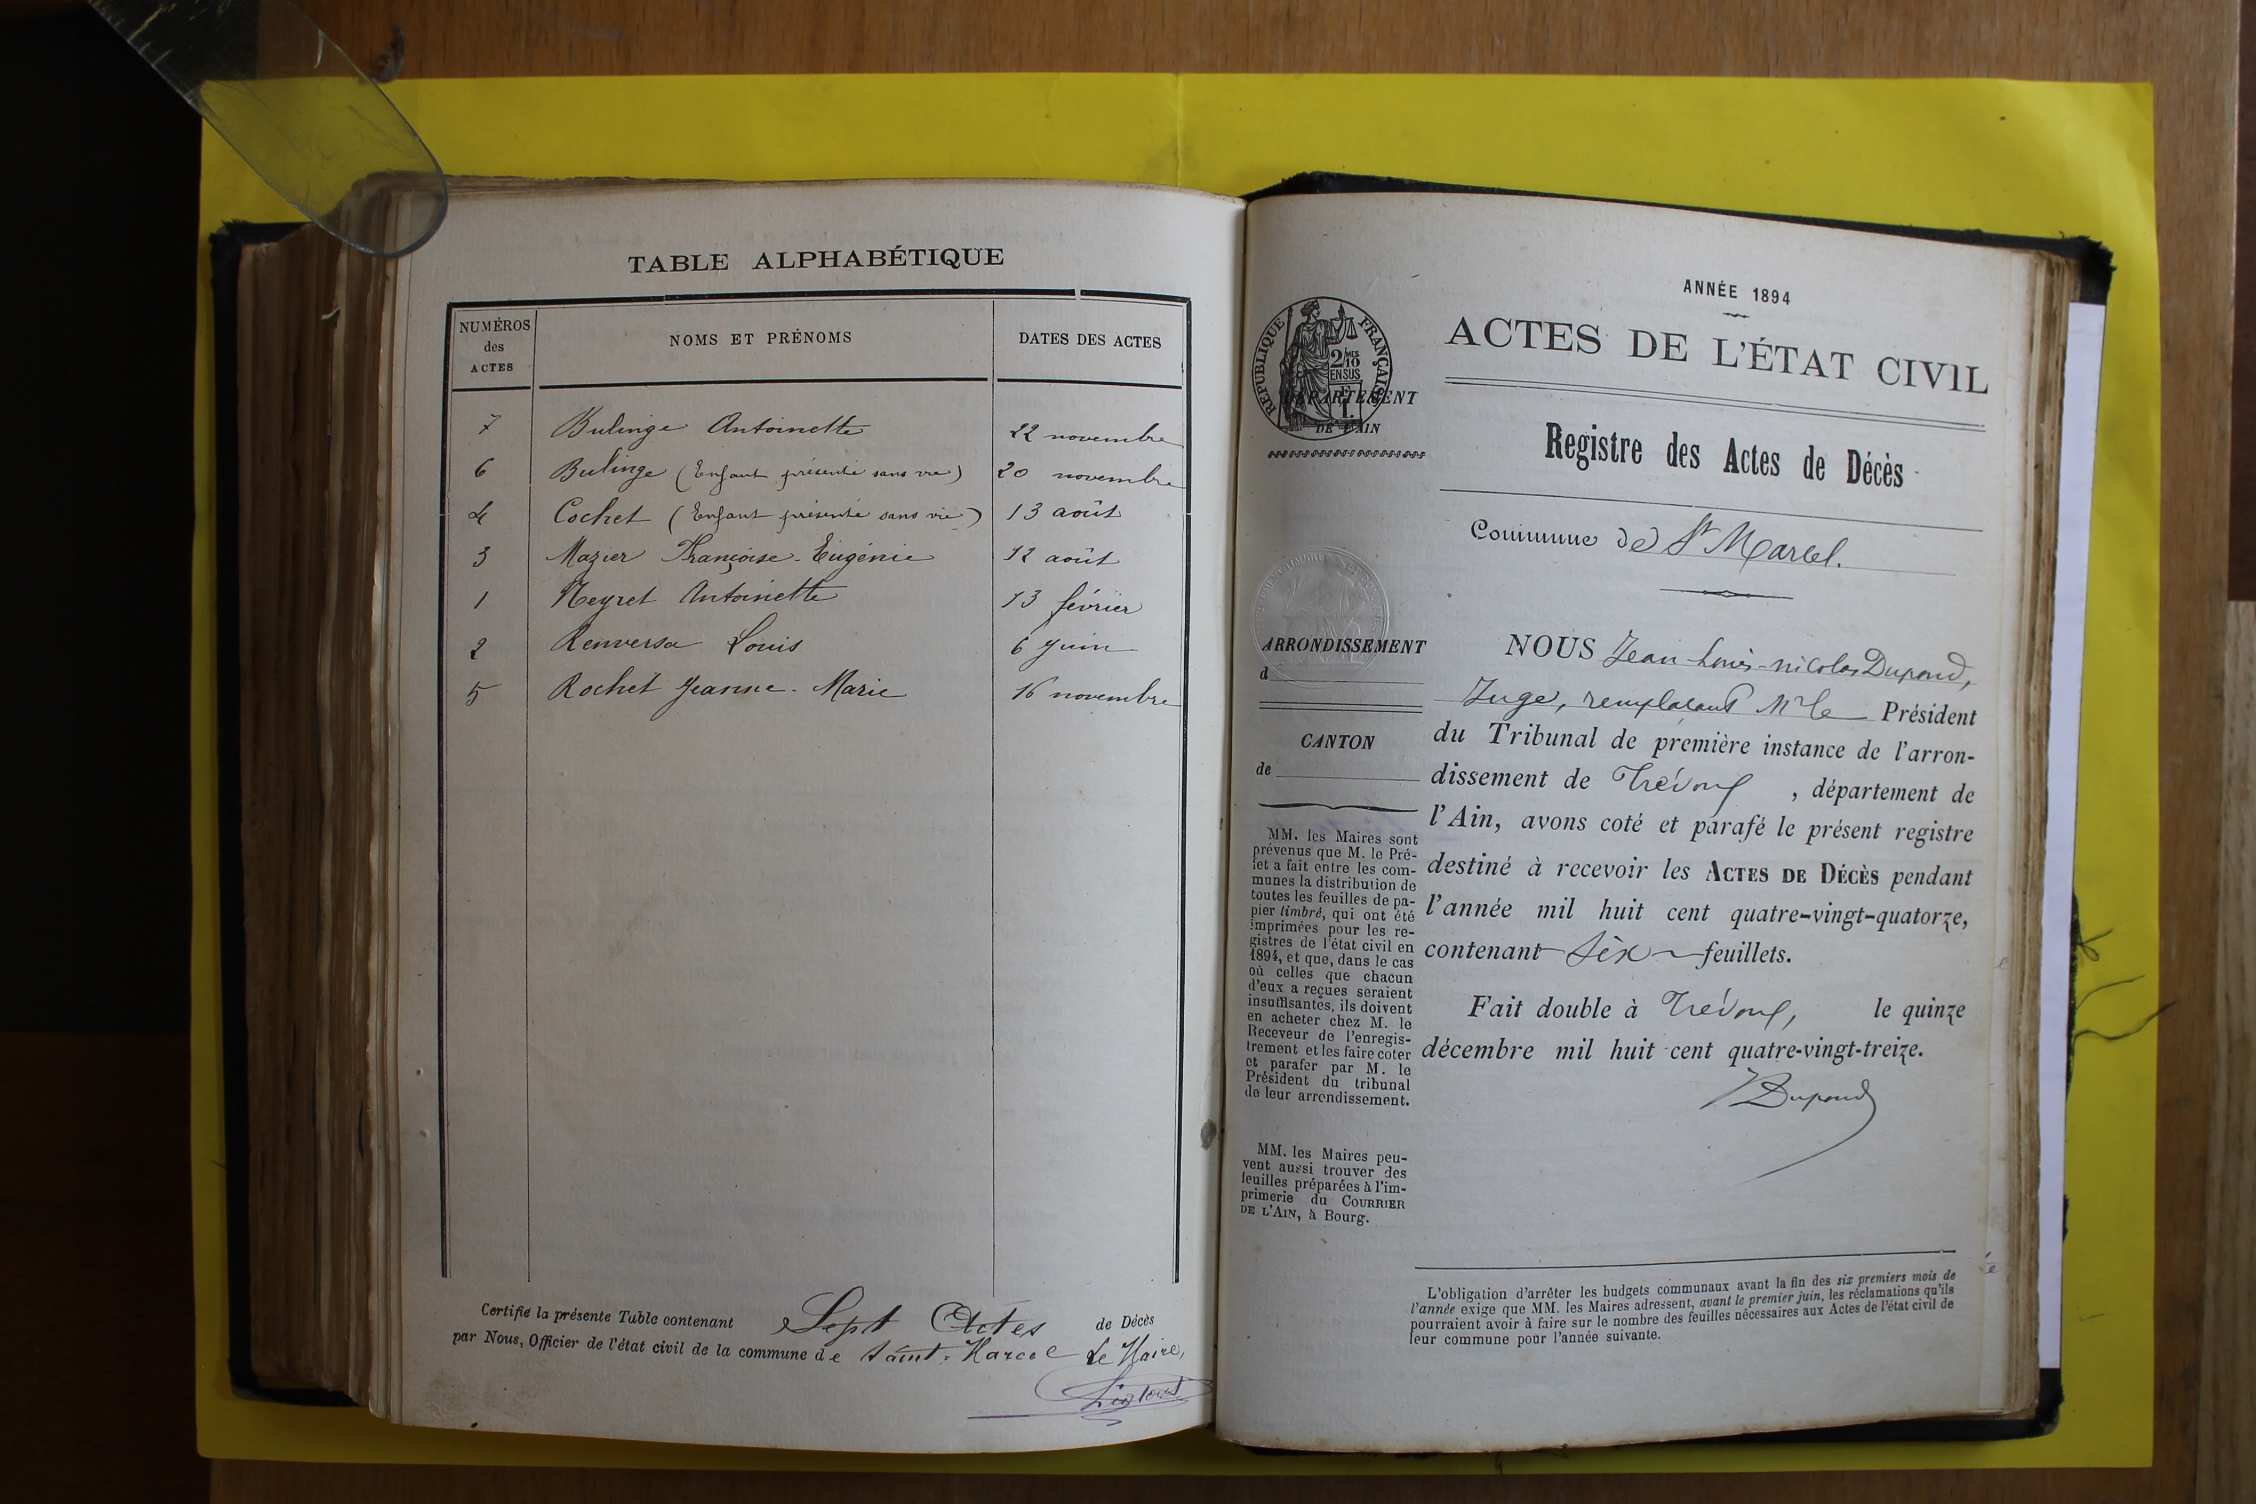 TABLE ALPHABÉTIQUE
NUMÉROS
des
ACTES
NOMS ET PRÉNOMS
DATES DES ACTES
7 Bulinge Antoinette 22 novembre
6 Bulinge (Enfant présenté sans vie) 20 novembre
4 Cochet (Enfant présenté sans vie) 13 août
3 Mazier Françoise-Eugénie 12 août
1 Neyret Antoinette 13 février
2 Renversa Louis 6 Juin
5 Rochet Jeanne-Marie 16 novembre
Certifié la présente Table contenant Sept Actes de Décès
par Nous, Officier de l'état civil de la commune de Saint-Marcel Le Maire,
ANNÉE 1894
ACTES DE L'ÉTAT CIVIL
RÉPUBLIQUE FRANÇAISE
2/10
EN SUS
DÉPARTEMENT
DE L'AIN
Registre des Actes de Décès
Commune de St Marcel.
ARRONDISSEMENT
d
CANTON
de
NOUS Jean-Louis-nicolas Dupond,
Juge, remplacant Mr le Président
du Tribunal de première instance de l'arron-
dissement de Trévoux, département de
l'Ain, avons coté et parafé le présent registre
destiné à recevoir les ACTES DE DÉCÈS pendant
l'année mil huit cent quatre-vingt-quatorze,
contenant six feuillets.
Fait double à Trévoux, le quinze
décembre mil huit cent quatre-vingt-treize.
Dupond
MM. les Maires sont
prévenus que M. le Pré-
fet a fait entre les com-
munes la distribution de
toutes les feuilles de pa-
pier timbré, qui ont été
imprimées pour les re-
gistres de l'état civil en
1894, et que, dans le cas
où celles que chacun
d'eux a reçues seraient
insuffisantes, ils doivent
en acheter chez M. le
Receveur de l'enregis-
trement et les faire coter
et parafer par M. le
Président du tribunal
de leur arrondissement.
MM. les Maires peu-
vent aussi trouver des
feuilles préparées à l'im-
primerie du COURRIER
DE L'AIN, à Bourg.
L'obligation d'arrêter les budgets communaux avant la fin des six premiers mois de
l'année exige que MM. les Maires adressent, avant le premier juin, les réclamations qu'ils
pourraient avoir à faire sur le nombre des feuilles nécessaires aux Actes de l'état civil de
leur commune pour l'année suivante.